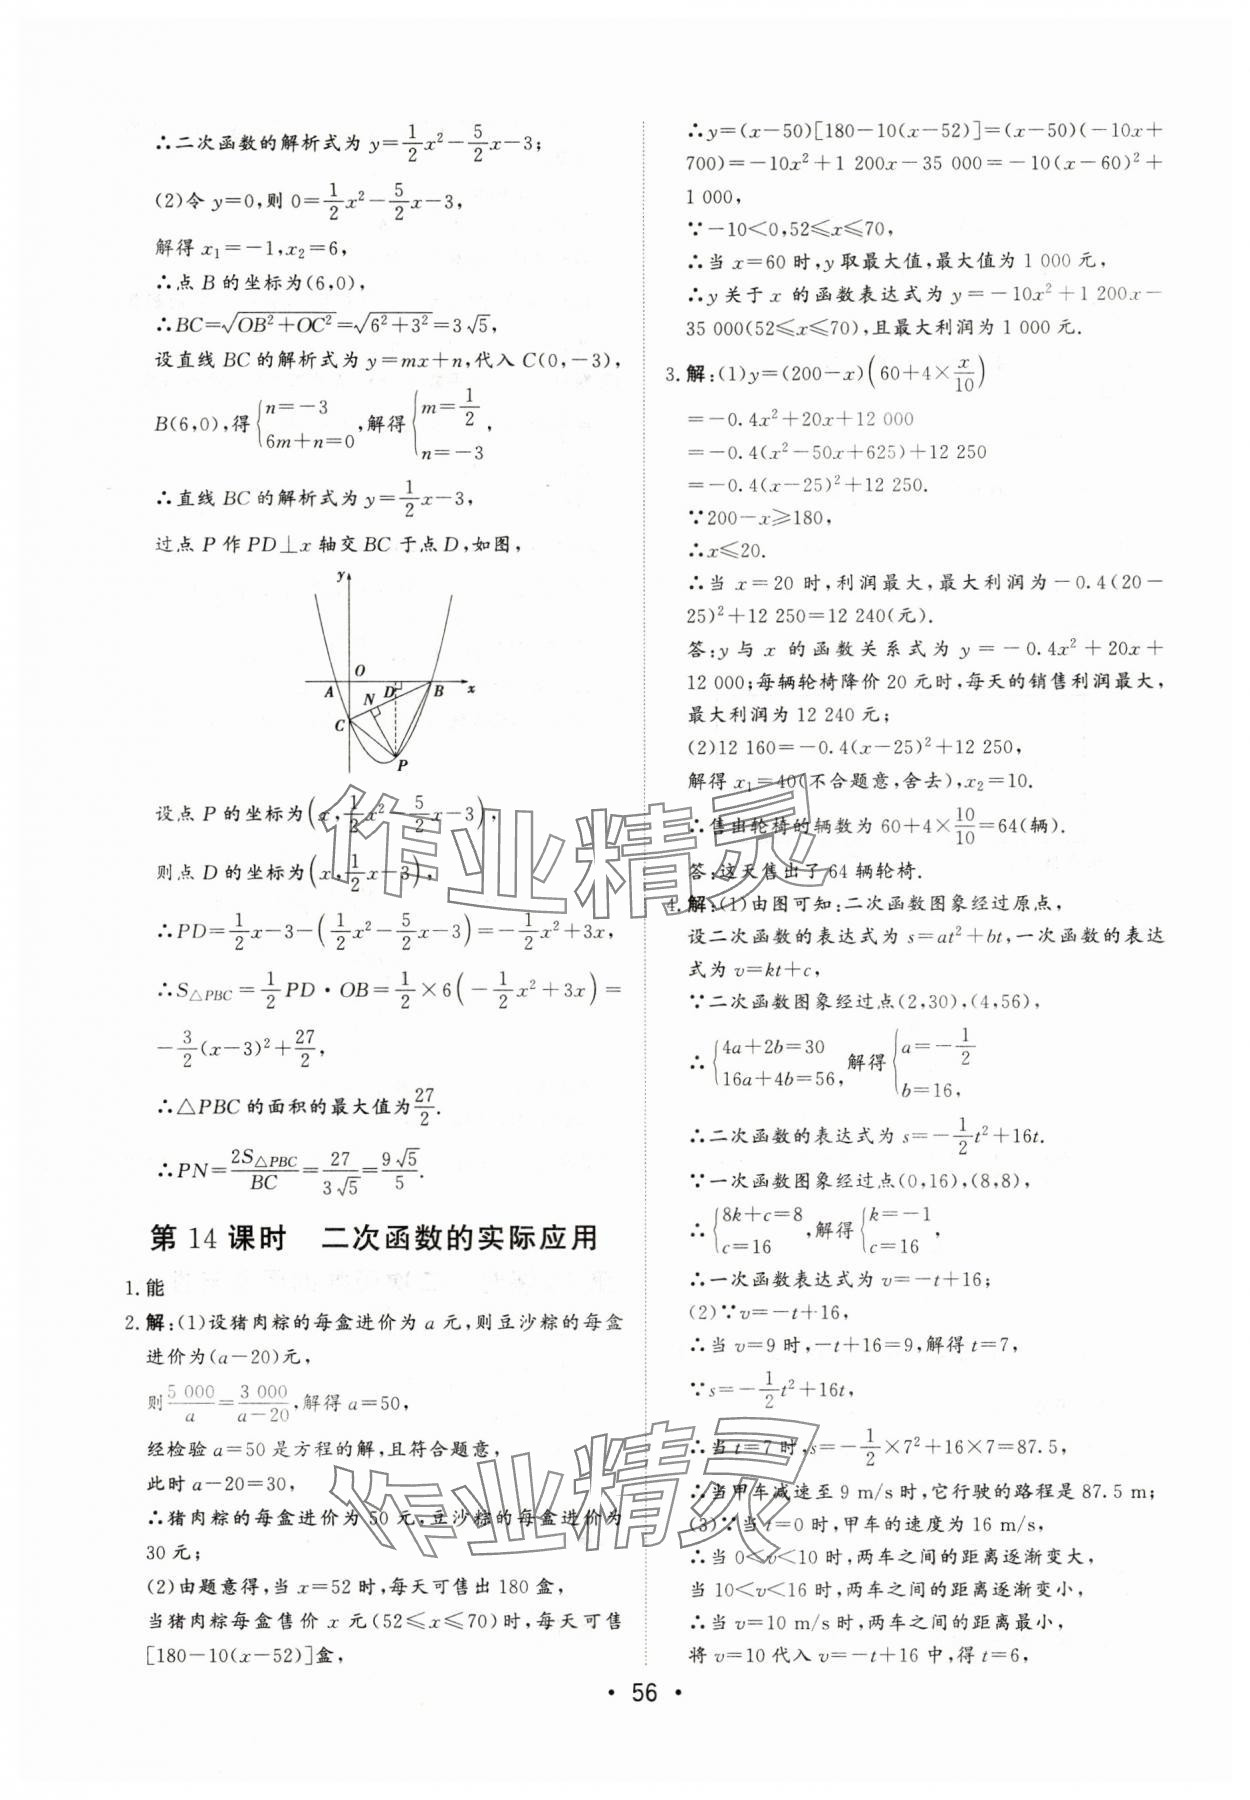 ∴二次函数的解析式为 y=1/2x²-5/2x-3;
(2)令 y=0,则 0=1/2x²-5/2x-3,
解得 x₁=-1,x₂=6,
∴点 B 的坐标为(6,0),
∴BC=√(OB²+OC²)=√(6²+3²)=3√5,
设直线 BC 的解析式为 y=mx+n,代入 C(0,-3),
B(6,0),得{n=-3 6m+n=0,解得{m=1/2 n=-3,
∴直线 BC 的解析式为 y=1/2x-3,
过点 P 作 PD⊥x 轴交 BC 于点 D,如图,
y
O
A
D
B
x
N
C
P
设点 P 的坐标为(x,1/2x²-5/2x-3),
则点 D 的坐标为(x,1/2x-3),
∴PD=1/2x-3-(1/2x²-5/2x-3)=-1/2x²+3x,
∴S△PBC=1/2PD·OB=1/2×6(-1/2x²+3x)=
-3/2(x-3)²+27/2,
∴△PBC 的面积的最大值为27/2.
∴PN=2S△PBC/BC=27/3√5=9√5/5.
第 14 课时 二次函数的实际应用
1.能
2.解:(1)设猪肉粽的每盒进价为 a 元,则豆沙粽的每盒
进价为(a-20)元,
则5 000/a=3 000/(a-20),解得 a=50,
经检验 a=50 是方程的解,且符合题意,
此时 a-20=30,
∴猪肉粽的每盒进价为 50 元,豆沙粽的每盒进价为
30 元;
(2)由题意得,当 x=52 时,每天可售出 180 盒,
当猪肉粽每盒售价 x 元(52≤x≤70)时,每天可售
[180-10(x-52)]盒,
∴y=(x-50)[180-10(x-52)]=(x-50)(-10x+
700)=-10x²+1 200x-35 000=-10(x-60)²+
1 000,
∵-10<0,52≤x≤70,
∴当 x=60 时,y 取最大值,最大值为 1 000 元,
∴y 关于 x 的函数表达式为 y=-10x²+1 200x-
35 000(52≤x≤70),且最大利润为 1 000 元.
3.解:(1)y=(200-x)(60+4×x/10)
=-0.4x²+20x+12 000
=-0.4(x²-50x+625)+12 250
=-0.4(x-25)²+12 250.
∵200-x≥180,
∴x≤20.
∴当 x=20 时,利润最大,最大利润为-0.4(20-
25)²+12 250=12 240(元).
答:y 与 x 的函数关系式为 y=-0.4x²+20x+
12 000;每辆轮椅降价 20 元时,每天的销售利润最大,
最大利润为 12 240 元;
(2)12 160=-0.4(x-25)²+12 250,
解得 x₁=40(不合题意,舍去),x₂=10.
∴售出轮椅的辆数为 60+4×10/10=64(辆).
答:这天售出了 64 辆轮椅.
4.解:(1)由图可知:二次函数图象经过原点,
设二次函数的表达式为 s=at²+bt,一次函数的表达
式为 v=kt+c,
∵二次函数图象经过点(2,30),(4,56),
∴{4a+2b=30 16a+4b=56,解得{a=-1/2 b=16,
∴二次函数的表达式为 s=-1/2t²+16t.
∵一次函数图象经过点(0,16),(8,8),
∴{8k+c=8 c=16,解得{k=-1 c=16,
∴一次函数表达式为 v=-t+16;
(2)∵v=-t+16,
∴当 v=9 时,-t+16=9,解得 t=7,
∵s=-1/2t²+16t,
∴当 t=7 时,s=-1/2×7²+16×7=87.5,
∴当甲车减速至 9 m/s 时,它行驶的路程是 87.5 m;
(3)∵当 t=0 时,甲车的速度为 16 m/s,
∴当 0<v<10 时,两车之间的距离逐渐变大,
当 10<v<16 时,两车之间的距离逐渐变小,
∴当 v=10 m/s 时,两车之间的距离最小,
将 v=10 代入 v=-t+16 中,得 t=6,
·56·
作业精灵
作业精灵